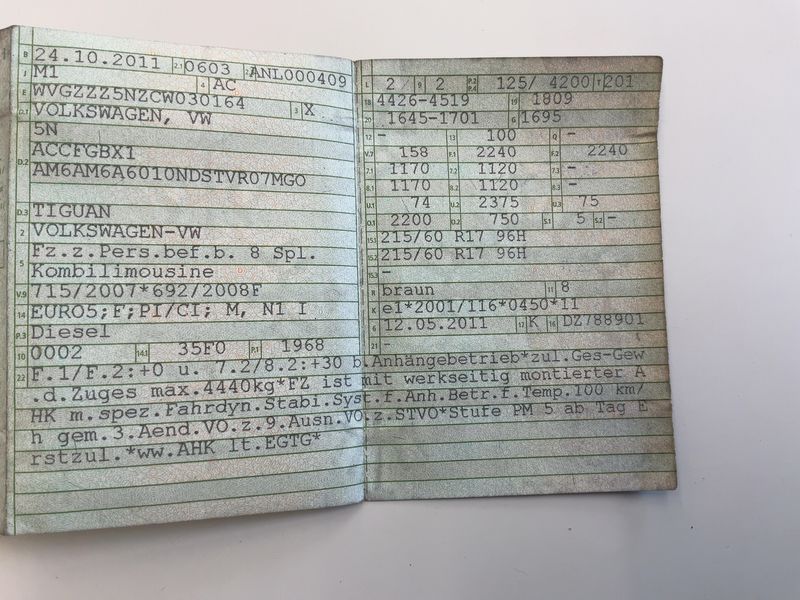 B 24.10.2011 2.1 0603 2.2 ANL000409
J M1 4 AC
E WVGZZZ5NZCW030164 3 X
D.1 VOLKSWAGEN, VW
5N
D.2 ACCFGBX1
AM6AM6A6010NDSTVR07MGO
D.3 TIGUAN
2 VOLKSWAGEN-VW
5 Fz.z.Pers.bef.b. 8 Spl.
Kombilimousine
V.9 715/2007*692/2008F
14 EURO5;F;PI/CI; M, N1 I
P.3 Diesel
10 0002 14.1 35F0 P.1 1968
L 2 9 2 P.2 P.4 125/ 4200 T 201
18 4426-4519 19 1809
20 1645-1701 G 1695
12 - 13 100 Q -
V.7 158 F.1 2240 F.2 2240
7.1 1170 7.2 1120 7.3 -
8.1 1170 8.2 1120 8.3 -
U.1 74 U.2 2375 U.3 75
O.1 2200 O.2 750 S.1 5 S.2 -
15.1 215/60 R17 96H
15.2 215/60 R17 96H
15.3 -
R braun 11 8
K e1*2001/116*0450*11
6 12.05.2011 17 K 16 DZ788901
21 -
22 F.1/F.2:+0 u. 7.2/8.2:+30 b.Anhängebetrieb*zul.Ges-Gew
.d.Zuges max.4440kg*FZ ist mit werkseitig montierter A
HK m.spez.Fahrdyn.Stabi.Syst.f.Anh.Betr.f.Temp.100 km/
h gem.3.Aend.VO.z.9.Ausn.VO.z.STVO*Stufe PM 5 ab Tag E
rstzul.*ww.AHK lt.EGTG*